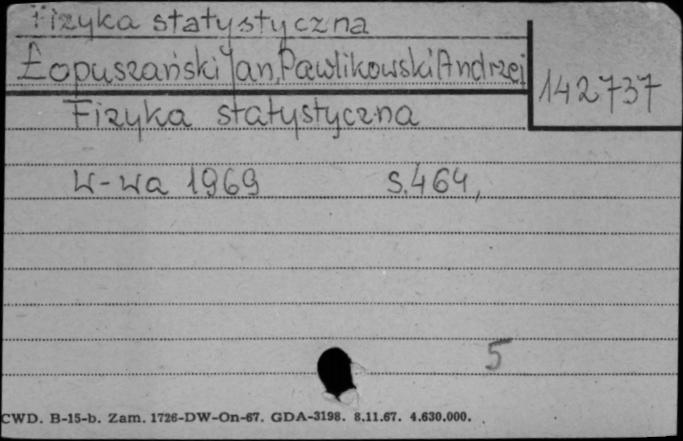 Fizyka statystyczna
Łopuszański Jan, Pawlikowski Andrzej
142737
Fizyka statystyczna
W-wa 1969 s. 464,
5
CWD. B-15-b. Zam. 1726-DW-On-67. GDA-3198. 8.11.67. 4.630.000.